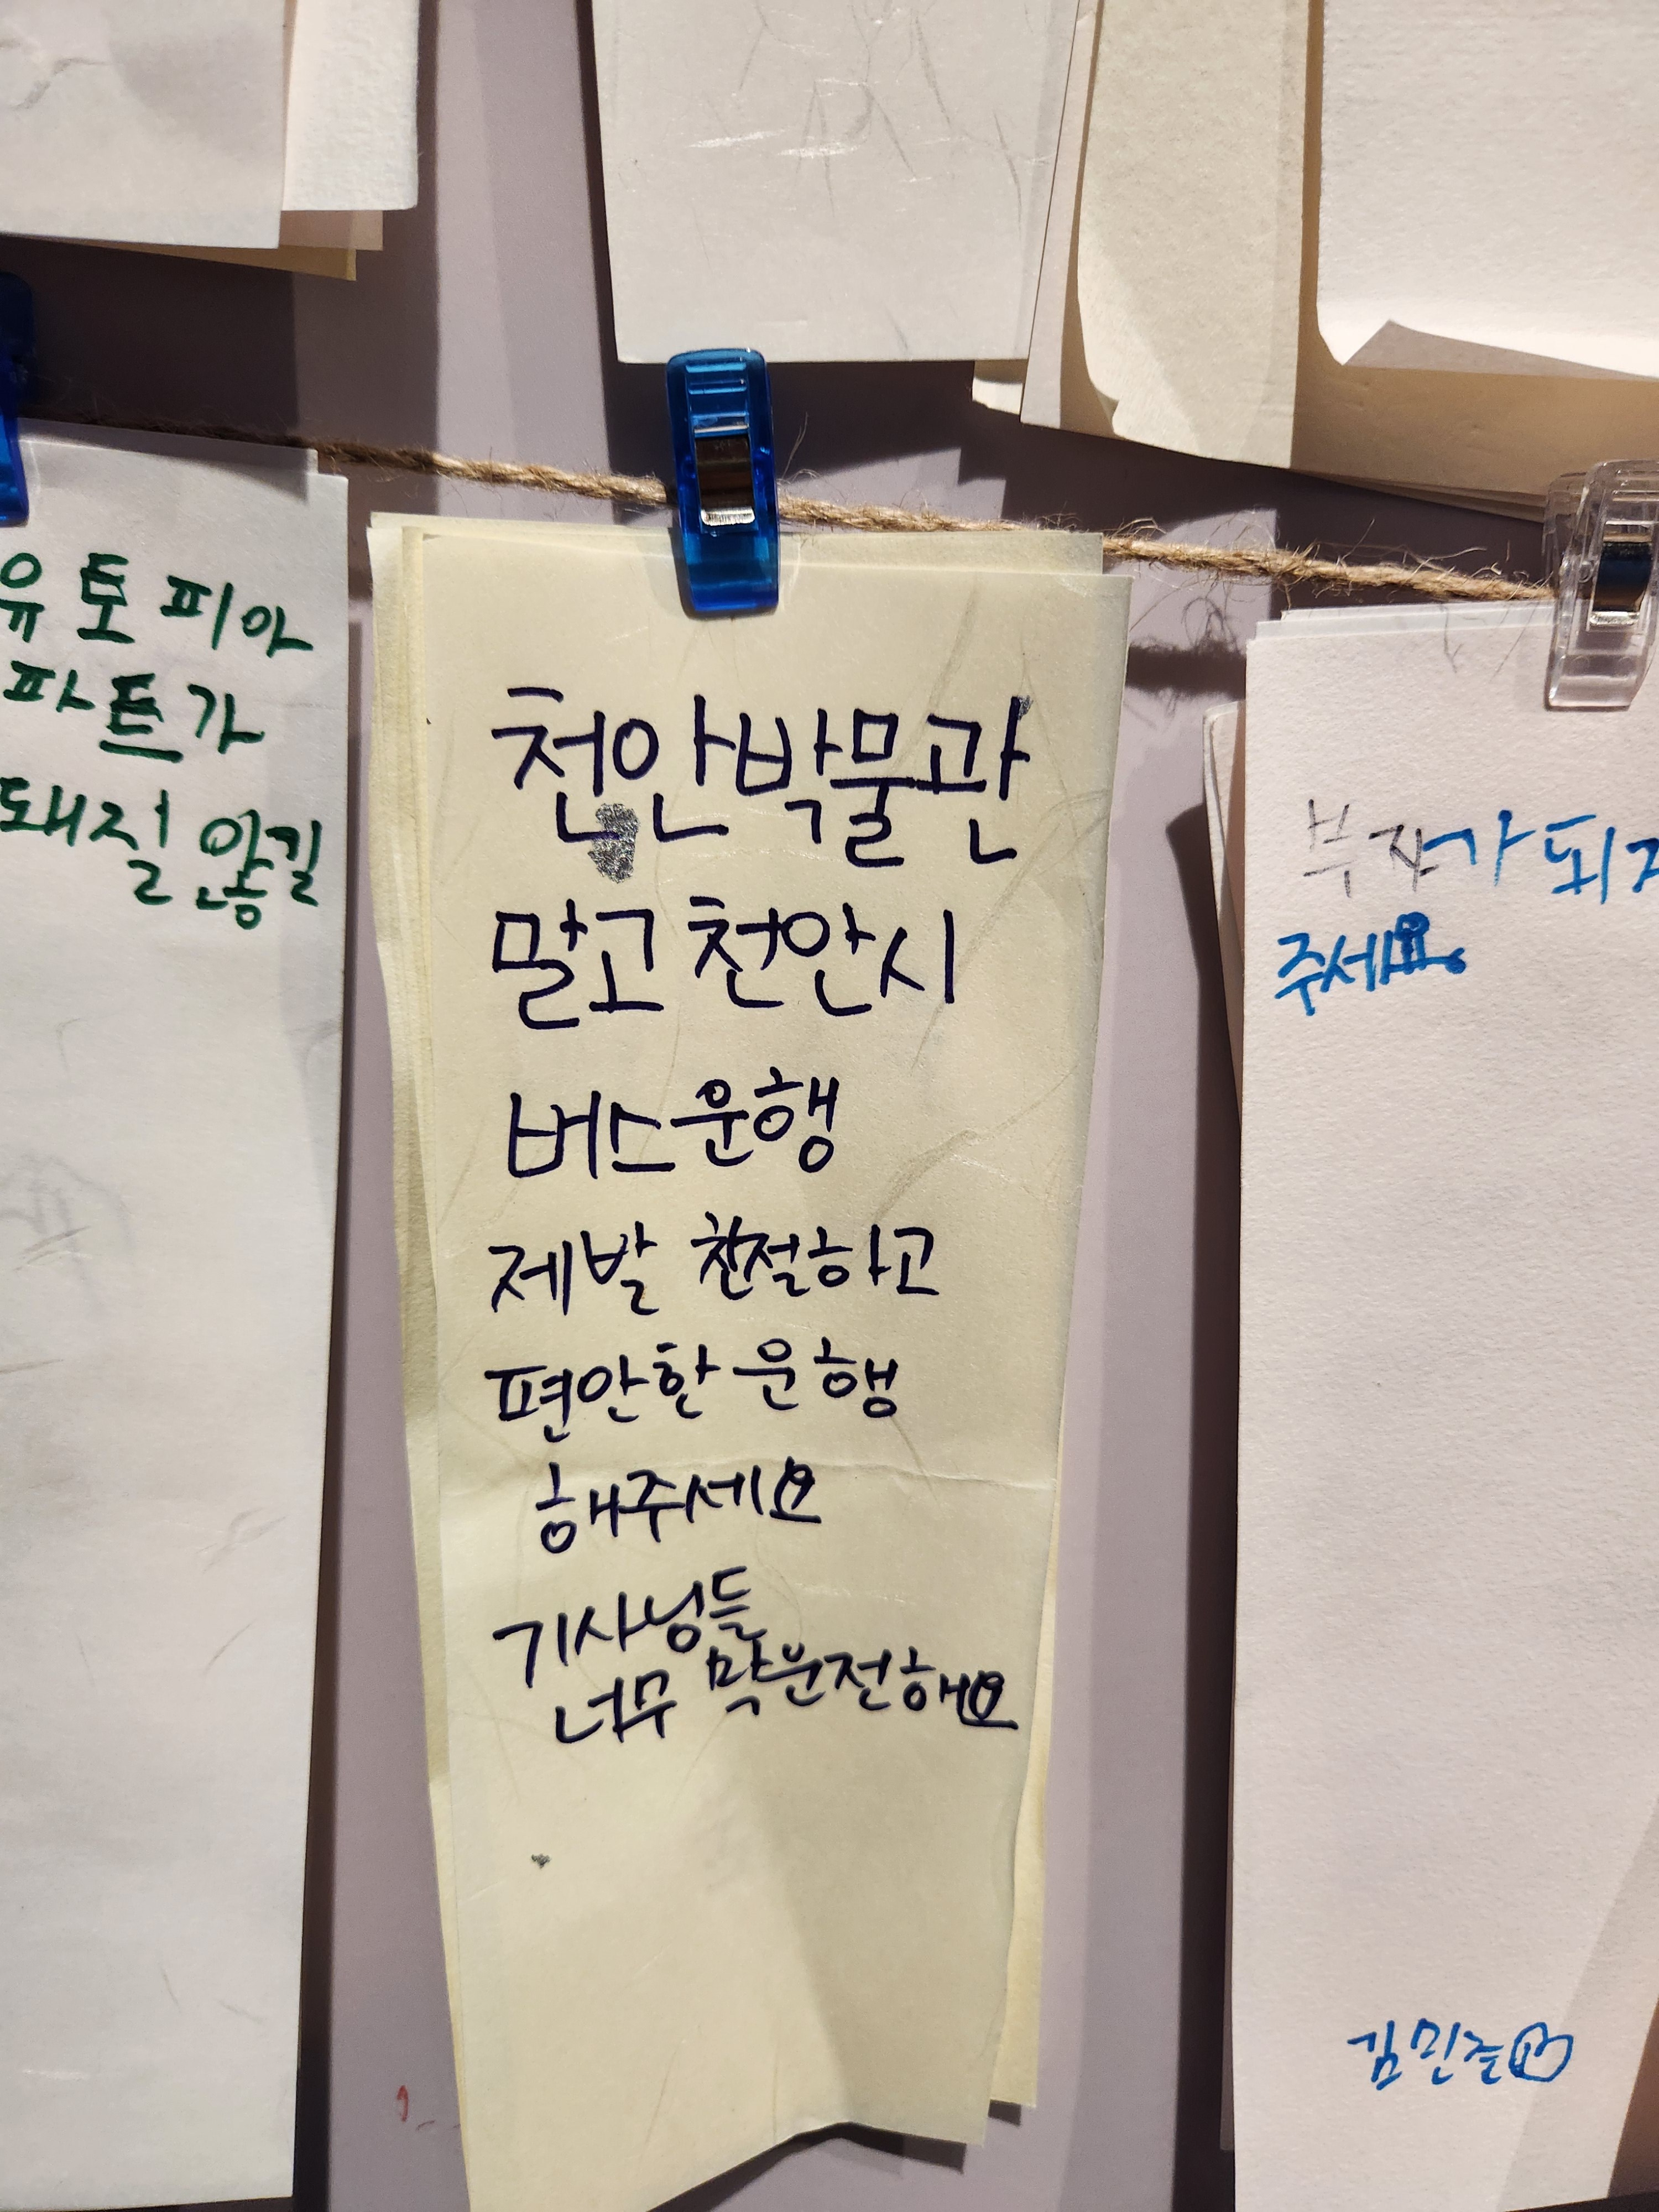 유토피아
파트가
돼질 않길
천안박물관
말고 천안시
버스운행
제발 친절하고
편안한 운행
해주세요
기사닝들
너무 막운전해요
부자가 되
주세요
김민준